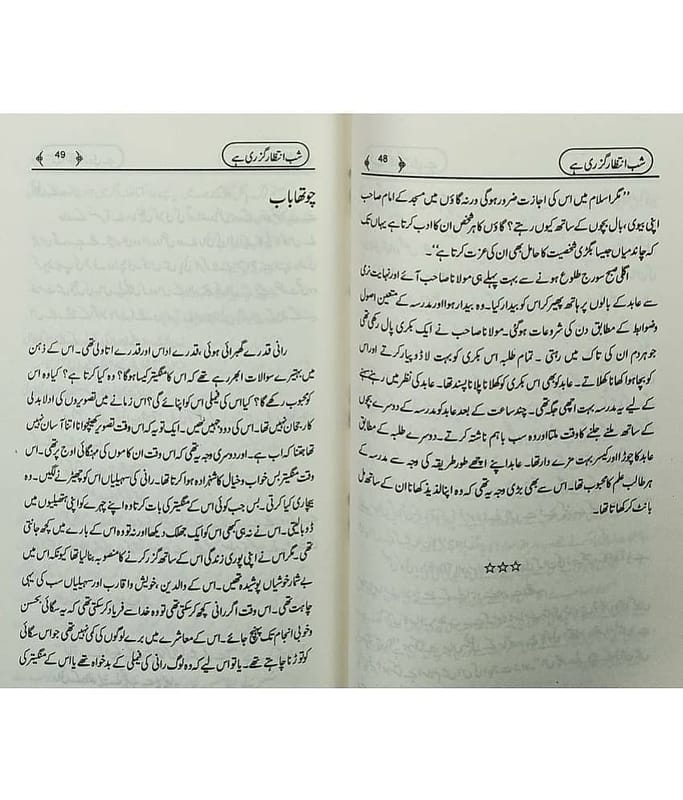 شب انتظار گزری ہے
48
’’مگر اسلام میں اس کی اجازت ضرور ہوگی ورنہ گاؤں میں مسجد کے امام صاحب
اپنی بیوی، بال بچوں کے ساتھ کیوں رہتے؟ گاؤں کا ہر شخص ان کا ادب کرتا ہے یہاں تک
کہ چاند میاں جیسا بگڑی شخصیت کا حامل بھی ان کی عزت کرتا ہے‘‘۔
اگلی صبح سورج طلوع ہونے سے بہت پہلے ہی مولانا صاحب آئے اور نہایت نرمی
سے عابد کے بالوں پر ہاتھ پھیر کر اس کو بیدار کیا۔ وہ بیدار ہوا اور مدرسہ کے متعین اصول
وضوابط کے مطابق دن کی شروعات ہوگئی۔ مولانا صاحب نے ایک بکری پال رکھی تھی
جو ہر دم ان کی تاک میں رہتی۔ تمام طلبہ اس بکری کو بہت لاڈو پیار کرتے اور اس
کو بچا ہوا کھانا کھلاتے۔ عابد کو بھی اس بکری کو کھلانا پلانا پسند تھا۔ عابد کی نظر میں رہنے سہنے
کے لیے یہ مدرسہ بہت اچھی جگہ تھی۔ چند ساعت کے بعد عابد کو مدرسہ کے دوسرے بچوں
کے ساتھ ملنے جلنے کا وقت ملتا اور وہ سب باہم ناشتہ کرتے۔ دوسرے طلبہ کے مطابق
عابد کا چوڑا اور کیسر بہت مزے دار تھا۔ عابد اپنے اچھے طور طریقہ کی وجہ سے مدرسہ کے
ہر طالب علم کا محبوب تھا۔ اس سے بھی بڑی وجہ یہ تھی کہ وہ اپنا لذیذ کھانا ان کے ساتھ مل
بانٹ کر کھاتا تھا۔
☆☆☆
شب انتظار گزری ہے
49
چوتھا باب
رانی قدرے گھبرائی ہوئی، قدرے اداس اور قدرے اتاولی تھی۔ اس کے ذہن
میں بہتیرے سوالات ابھر رہے تھے کہ اس کا منگیتر کیسا ہوگا؟ وہ کیا کرتا ہے؟ کیا وہ اس
کو محبوب رکھے گا؟ کیا اس کی فیملی اس کو اپنائے گی؟ اس زمانے میں تصویروں کی ادلا بدلی
کا رجحان نہیں تھا۔ اس کی دو وجہیں تھیں۔ ایک تو یہ کہ اس وقت تصویر کھینچوانا اتنا آسان نہیں
تھا جتنا کہ اب ہے۔ اور دوسری وجہ یہ تھی کہ اس وقت ان کاموں کی مہنگائی اوج پر تھی۔ اس
وقت منگیتر بس خواب و خیال کا شہزادہ ہوا کرتا تھا۔ رانی کی سہیلیاں اس کو چھیڑنے لگیں۔ وہ
بیچاری کیا کرتی۔ بس جب کوئی اس کے منگیتر کی بات کرتا وہ اپنے چہرے کو اپنی ہتھیلیوں میں
ڈوبا لیتی۔ اس نے نہ ہی کبھی اس کو ایک جھلک دیکھا اور نہ تو وہ اس کے بارے میں کچھ جانتی
تھی۔ مگر اس نے اپنی پوری زندگی اس کے ساتھ گزر کرنے کا منصوبہ بنا لیا تھا کیونکہ اس میں
بے شمار خوشیاں پوشیدہ تھیں۔ اس کے والدین، خویش و اقارب اور سہیلیاں سب کی یہی
چاہت تھی۔ اس وقت اگر رانی کچھ کر سکتی تھی تو وہ خدا سے فریاد کر سکتی تھی کہ یہ سگائی بحسن
وخوبی انجام تک پہنچ جائے۔ اس کے معاشرے میں برے لوگوں کی کمی نہیں تھی جو اس سگائی
کو توڑنا چاہتے تھے۔ یا تو اس لیے کہ وہ لوگ رانی کی فیملی کے بدخواہ تھے یا اس کے منگیتر کی